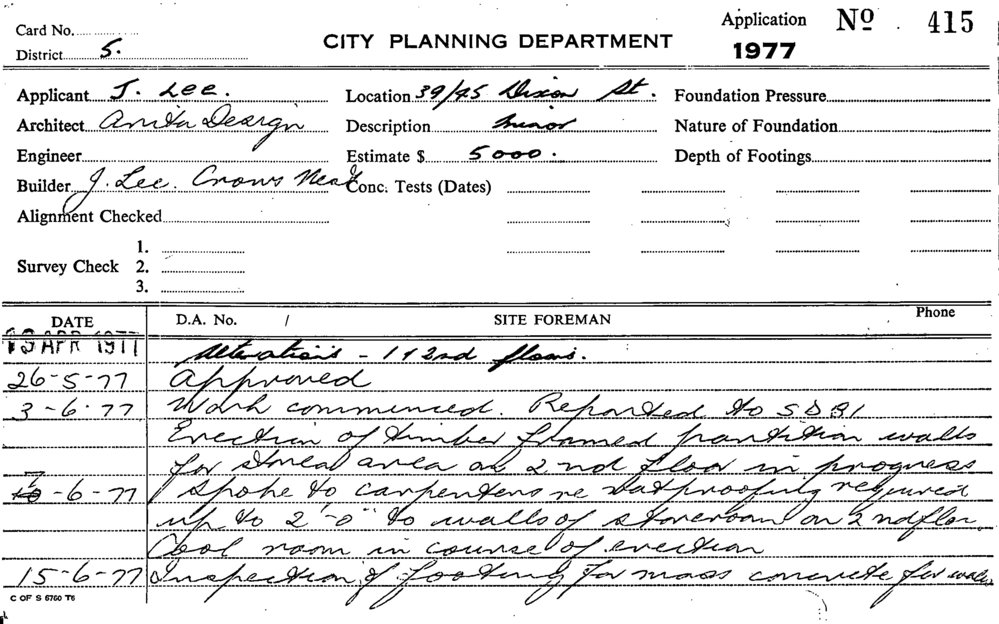 Card No.
District 5.
CITY PLANNING DEPARTMENT
Application Nº 415
1977
Applicant J. Lee.
Location 39/45 Dixon St.
Foundation Pressure
Architect Anita Deargn
Description Minor
Nature of Foundation
Engineer
Estimate $ 5000.
Depth of Footings
Builder J. Lee. Crows Nest
Conc. Tests (Dates)
Alignment Checked
Survey Check
1.
2.
3.
DATE D.A. No. / SITE FOREMAN Phone
19 APR 1977 Alterations - 1 & 2nd floors.
26-5-77 Approved
3-6-77 Work commenced. Reported to SDBI
Erection of timber framed partition walls
for area on 2nd floor in progress
7
10-6-77 Spoke to carpenters re ratproofing required
up to 2'-0" to walls of storeroom on 2nd flor.
Cool room in course of erection
15-6-77 Inspection of footing for mass concrete for
C OF S 5760 T6